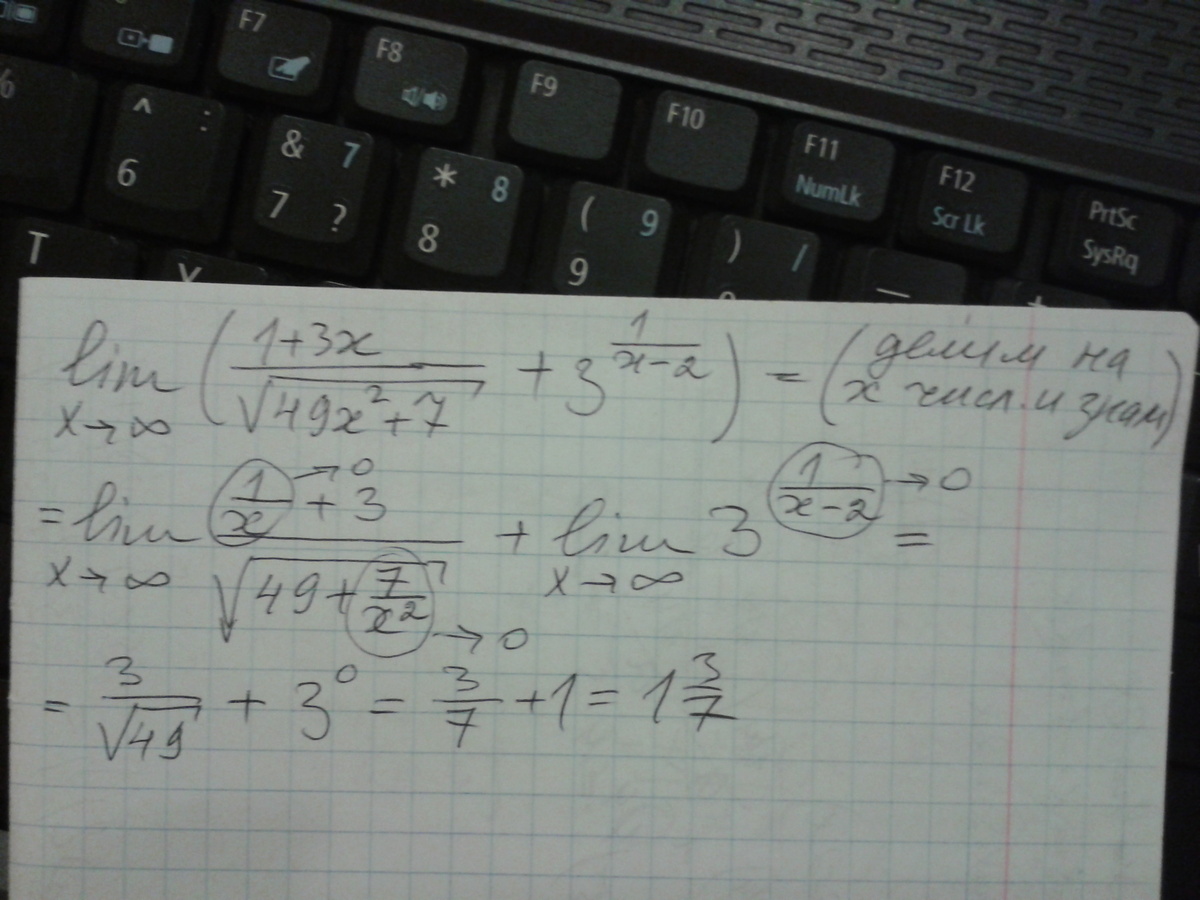 F7
F8
F9
F10
F11 NumLk
F12 Scr Lk
PrtSc SysRq
%
^ : 6
& 7 7 ?
* 8 8
( 9 9
) /
T
lim x→∞ ( (1+3x)/√(49x²+7) + 3^(1/(x-2)) ) = (делим на x числ. и знам)
= lim x→∞ (1/x →0 + 3)/√(49 + 7/x² →0) + lim x→∞ 3^(1/(x-2) →0) =
= 3/√49 + 3⁰ = 3/7 + 1 = 1 3/7